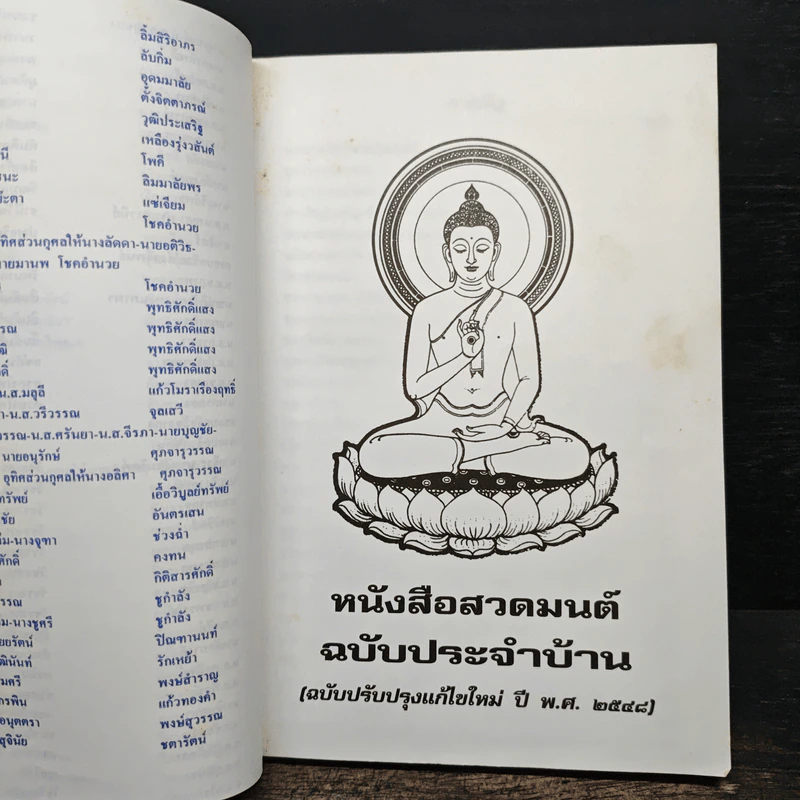 ลิ้มสิริอาภร
ลับกิ่ม
อุดมมาลัย
ตั้งจิตตาภรณ์
วุฒิประเสริฐ
เหลืองรุ่งวสันต์
นี โพคี
ธนะ ลิมมาลัยพร
แซ่เจียม
โชคอำนวย
อุทิศส่วนกุศลให้นางลัดดา-นายอติวิธ-
นายมานพ โชคอำนวย
โชคอำนวย
พุทธิศักดิ์แสง
รรณ พุทธิศักดิ์แสง
พุทธิศักดิ์แสง
พุทธิศักดิ์แสง
น.ส.มลุลี แก้วโมราเรืองฤทธิ์
-น.ส.วรีวรรณ จุลเสวี
วรรณ-น.ส.ศรันยา-น.ส.จีรภา-นายบุญชัย-
นายอนุรักษ์ ศุภจารุวรรณ
อุทิศส่วนกุศลให้นางอลิศา ศุภจารุวรรณ
ทรัพย์ เอื้อวิบูลย์ทรัพย์
ชัย อันตรเสน
-นางจุฑา ช่วงฉ่ำ
ศักดิ์ คงทน
กิติสารศักดิ์
รรณ ชูกำลัง
-นางชูศรี ชูกำลัง
ยรัตน์ ปิณฑานนท์
นันท์ รักเหย้า
มศรี พงษ์สำราญ
กรพิน แก้วทองคำ
อนุตตรา พงษ์สุวรรณ
สุจินัย ชตารัตน์
หนังสือสวดมนต์
ฉบับประจำบ้าน
(ฉบับปรับปรุงแก้ไขใหม่ ปี พ.ศ. ๒๕๔๘)